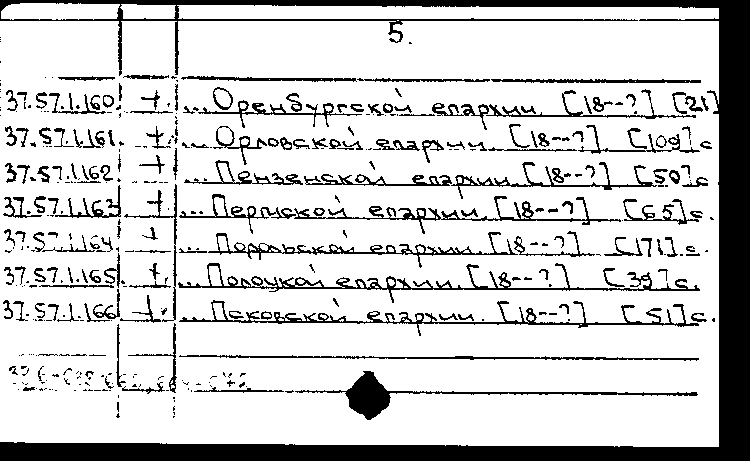 5.
37.57.1.160. +. ... Оренбургской епархии. [18--?] [21]
37.57.1.161. +. ... Орловской епархии. [18--?]. [109] с
37.57.1.162 + ... Пензенской епархии. [18--?] [50] с
37.57.1.163 + ... Пермской епархии. [18--?] [65] с.
37.57.1.164. + ... Подольской епархии. [18--?] [171] с.
37.57.1.165. +. ... Полоцкой епархии. [18--?] [39] с.
37.57.1.166 +. ... Псковской епархии. [18--?] [51] с.